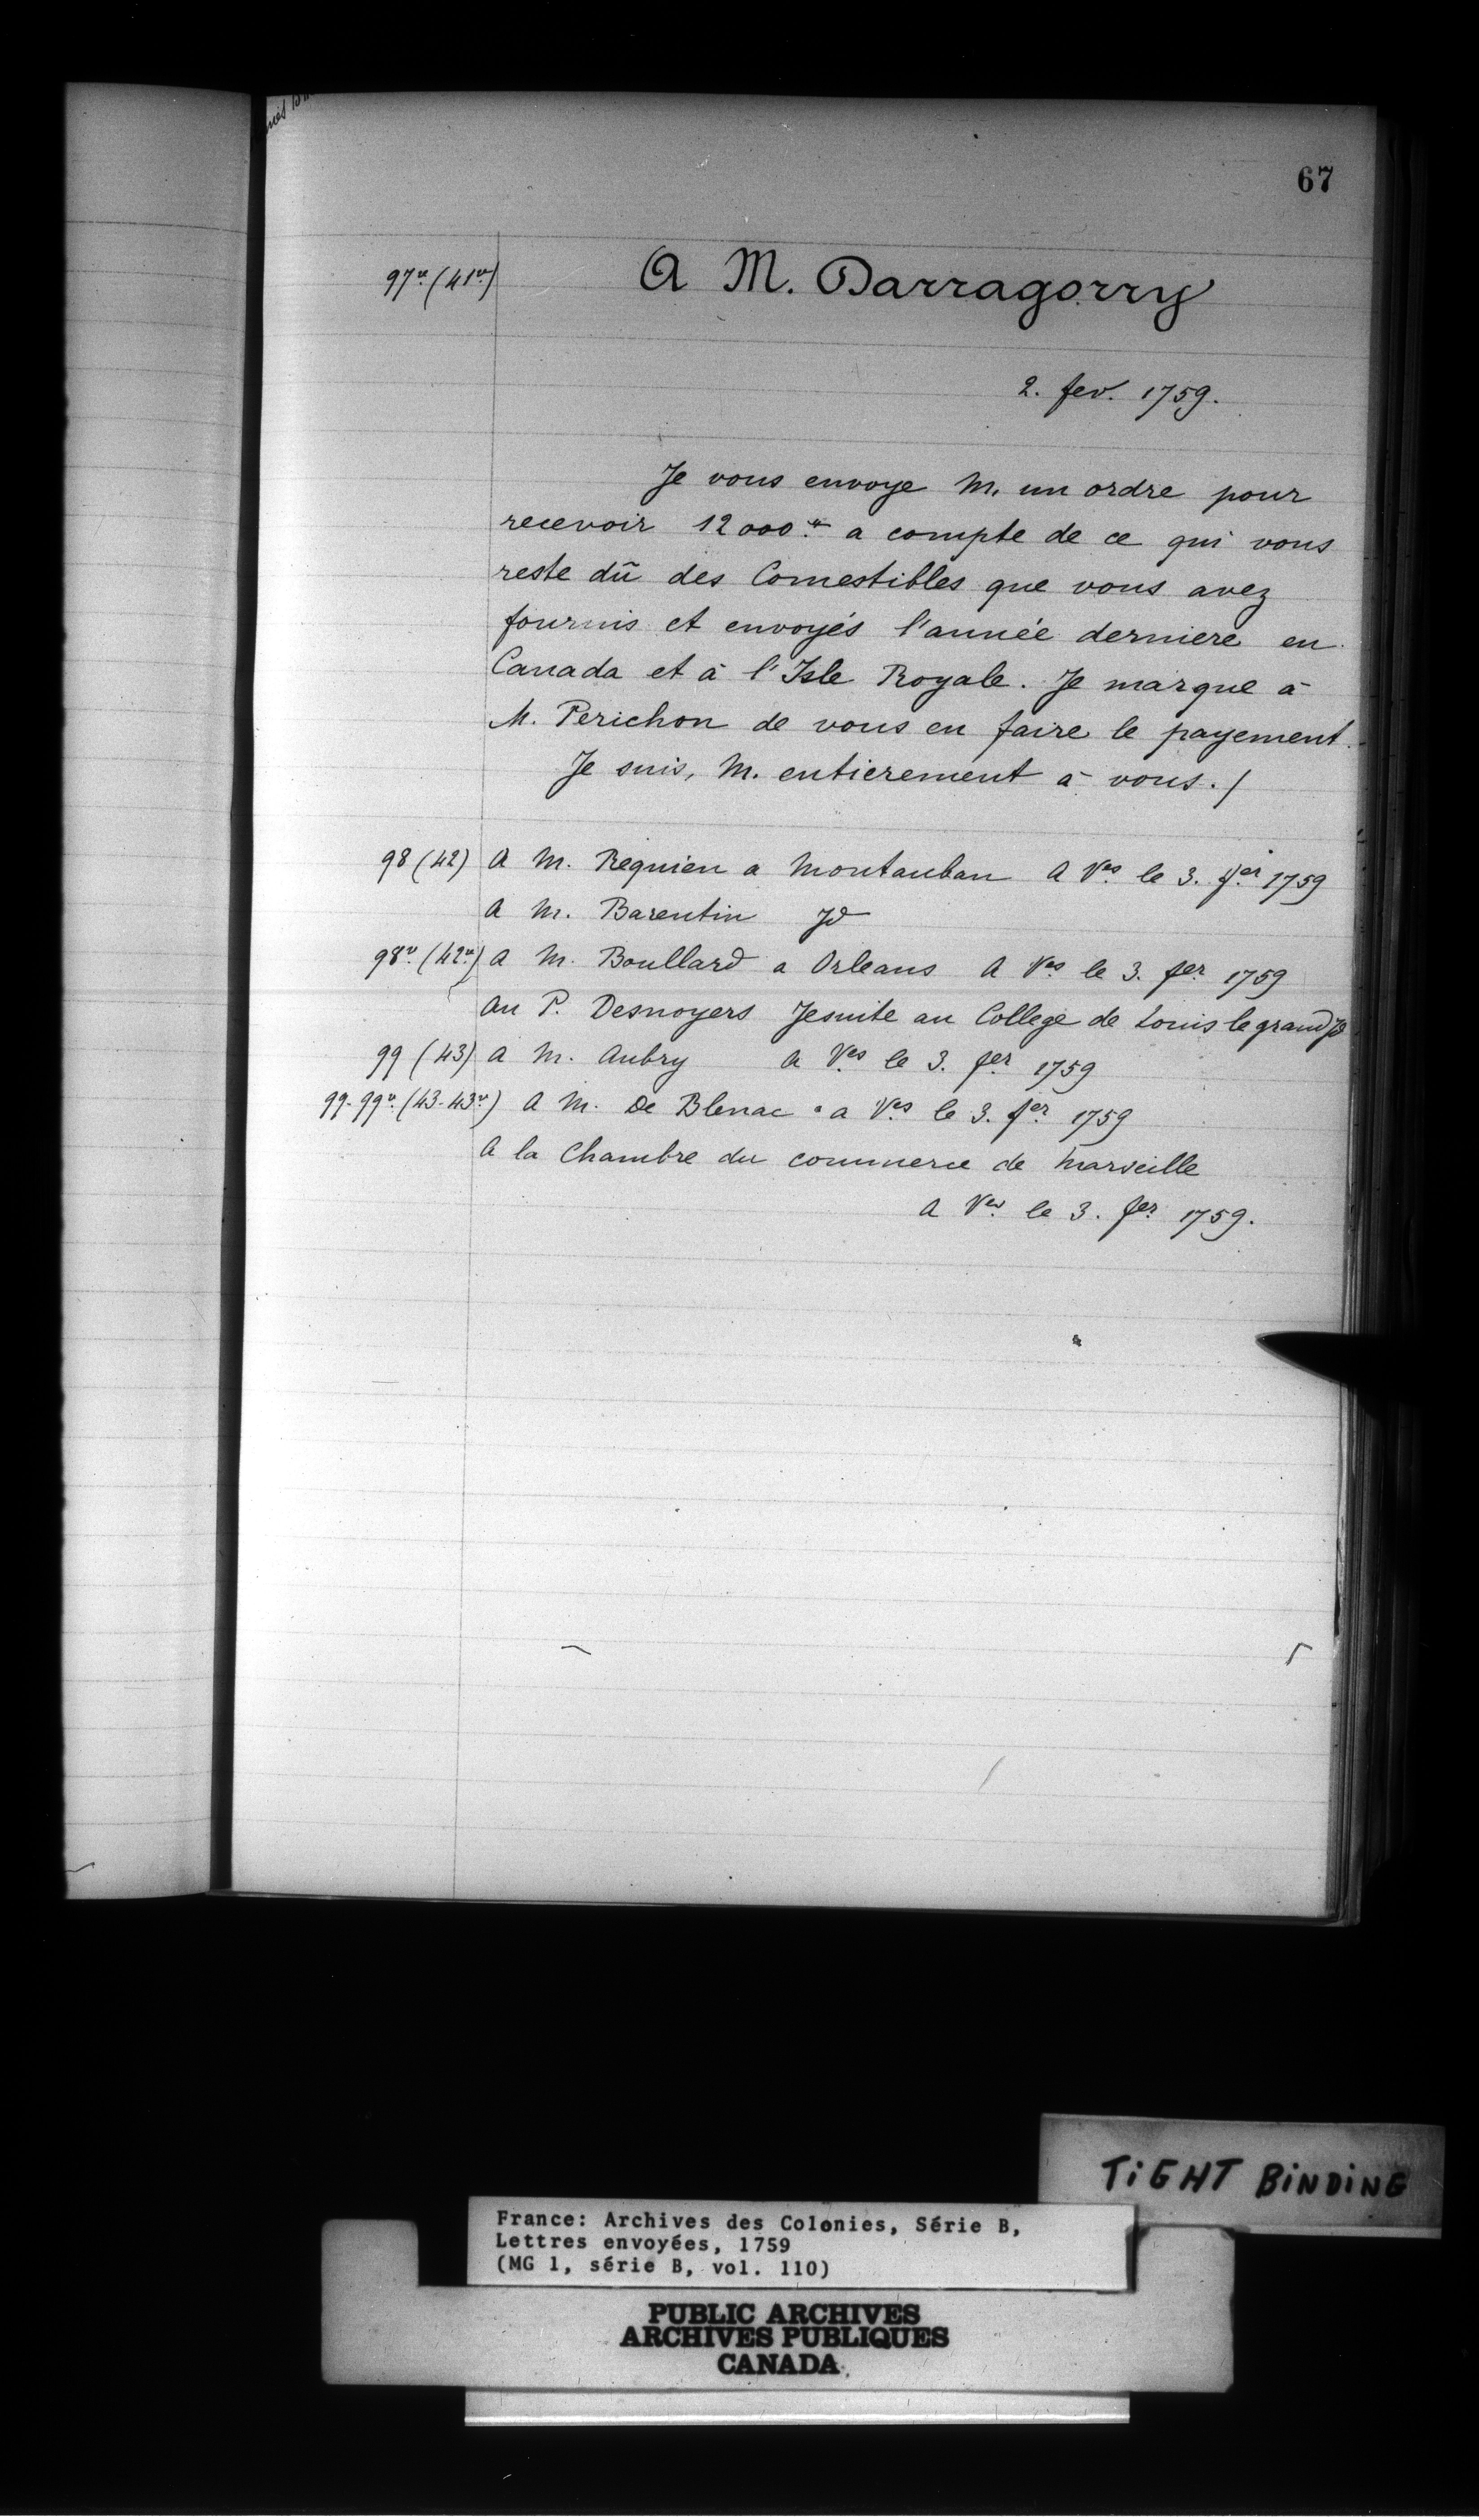 67
97v. (41v.) A M. Darragorry
2. fev. 1759.
Je vous envoye M. un ordre pour
recevoir 12000.# a compte de ce qui vous
reste dû des Comestibles que vous avez
fournis et envoyés l'année derniere en
Canada et à l'Isle Royale. Je marque à
M. Perichon de vous en faire le payement.
Je suis, M. entierement à vous./
98 (42) A M. Requien a Montauban A Ves le 3. fer 1759
A M. Barentin Jd
98v. (42v.) A M. Boullard a Orleans A Ves le 3. fer 1759
Au P. Desnoyers Jesuite au College de Louis le grand Jd
99 (43) A M. Aubry A Ves le 3. fer 1759
99-99v. (43-43v.) A M. De Blenac a Ves le 3. fer 1759
A la Chambre du commerce de Marseille
A Ves le 3. fer 1759.
TiGHT BiNDiNG
France: Archives des Colonies, Série B,
Lettres envoyées, 1759
(MG 1, série B, vol. 110)
PUBLIC ARCHIVES
ARCHIVES PUBLIQUES
CANADA